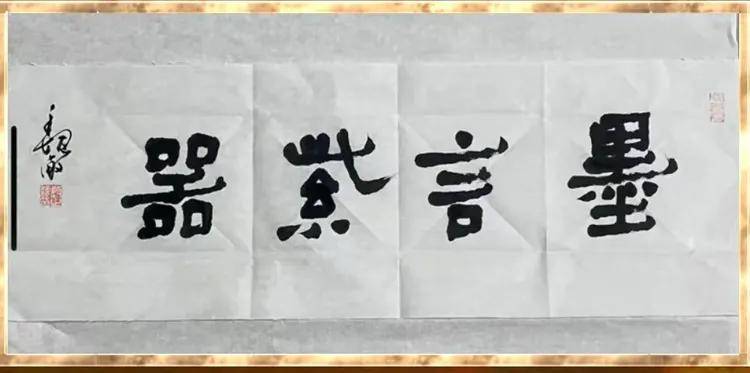 墨言紫器